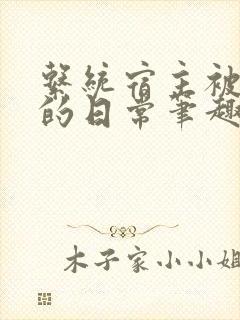 系统宿主被
的日常笔趣
木子家小小姐